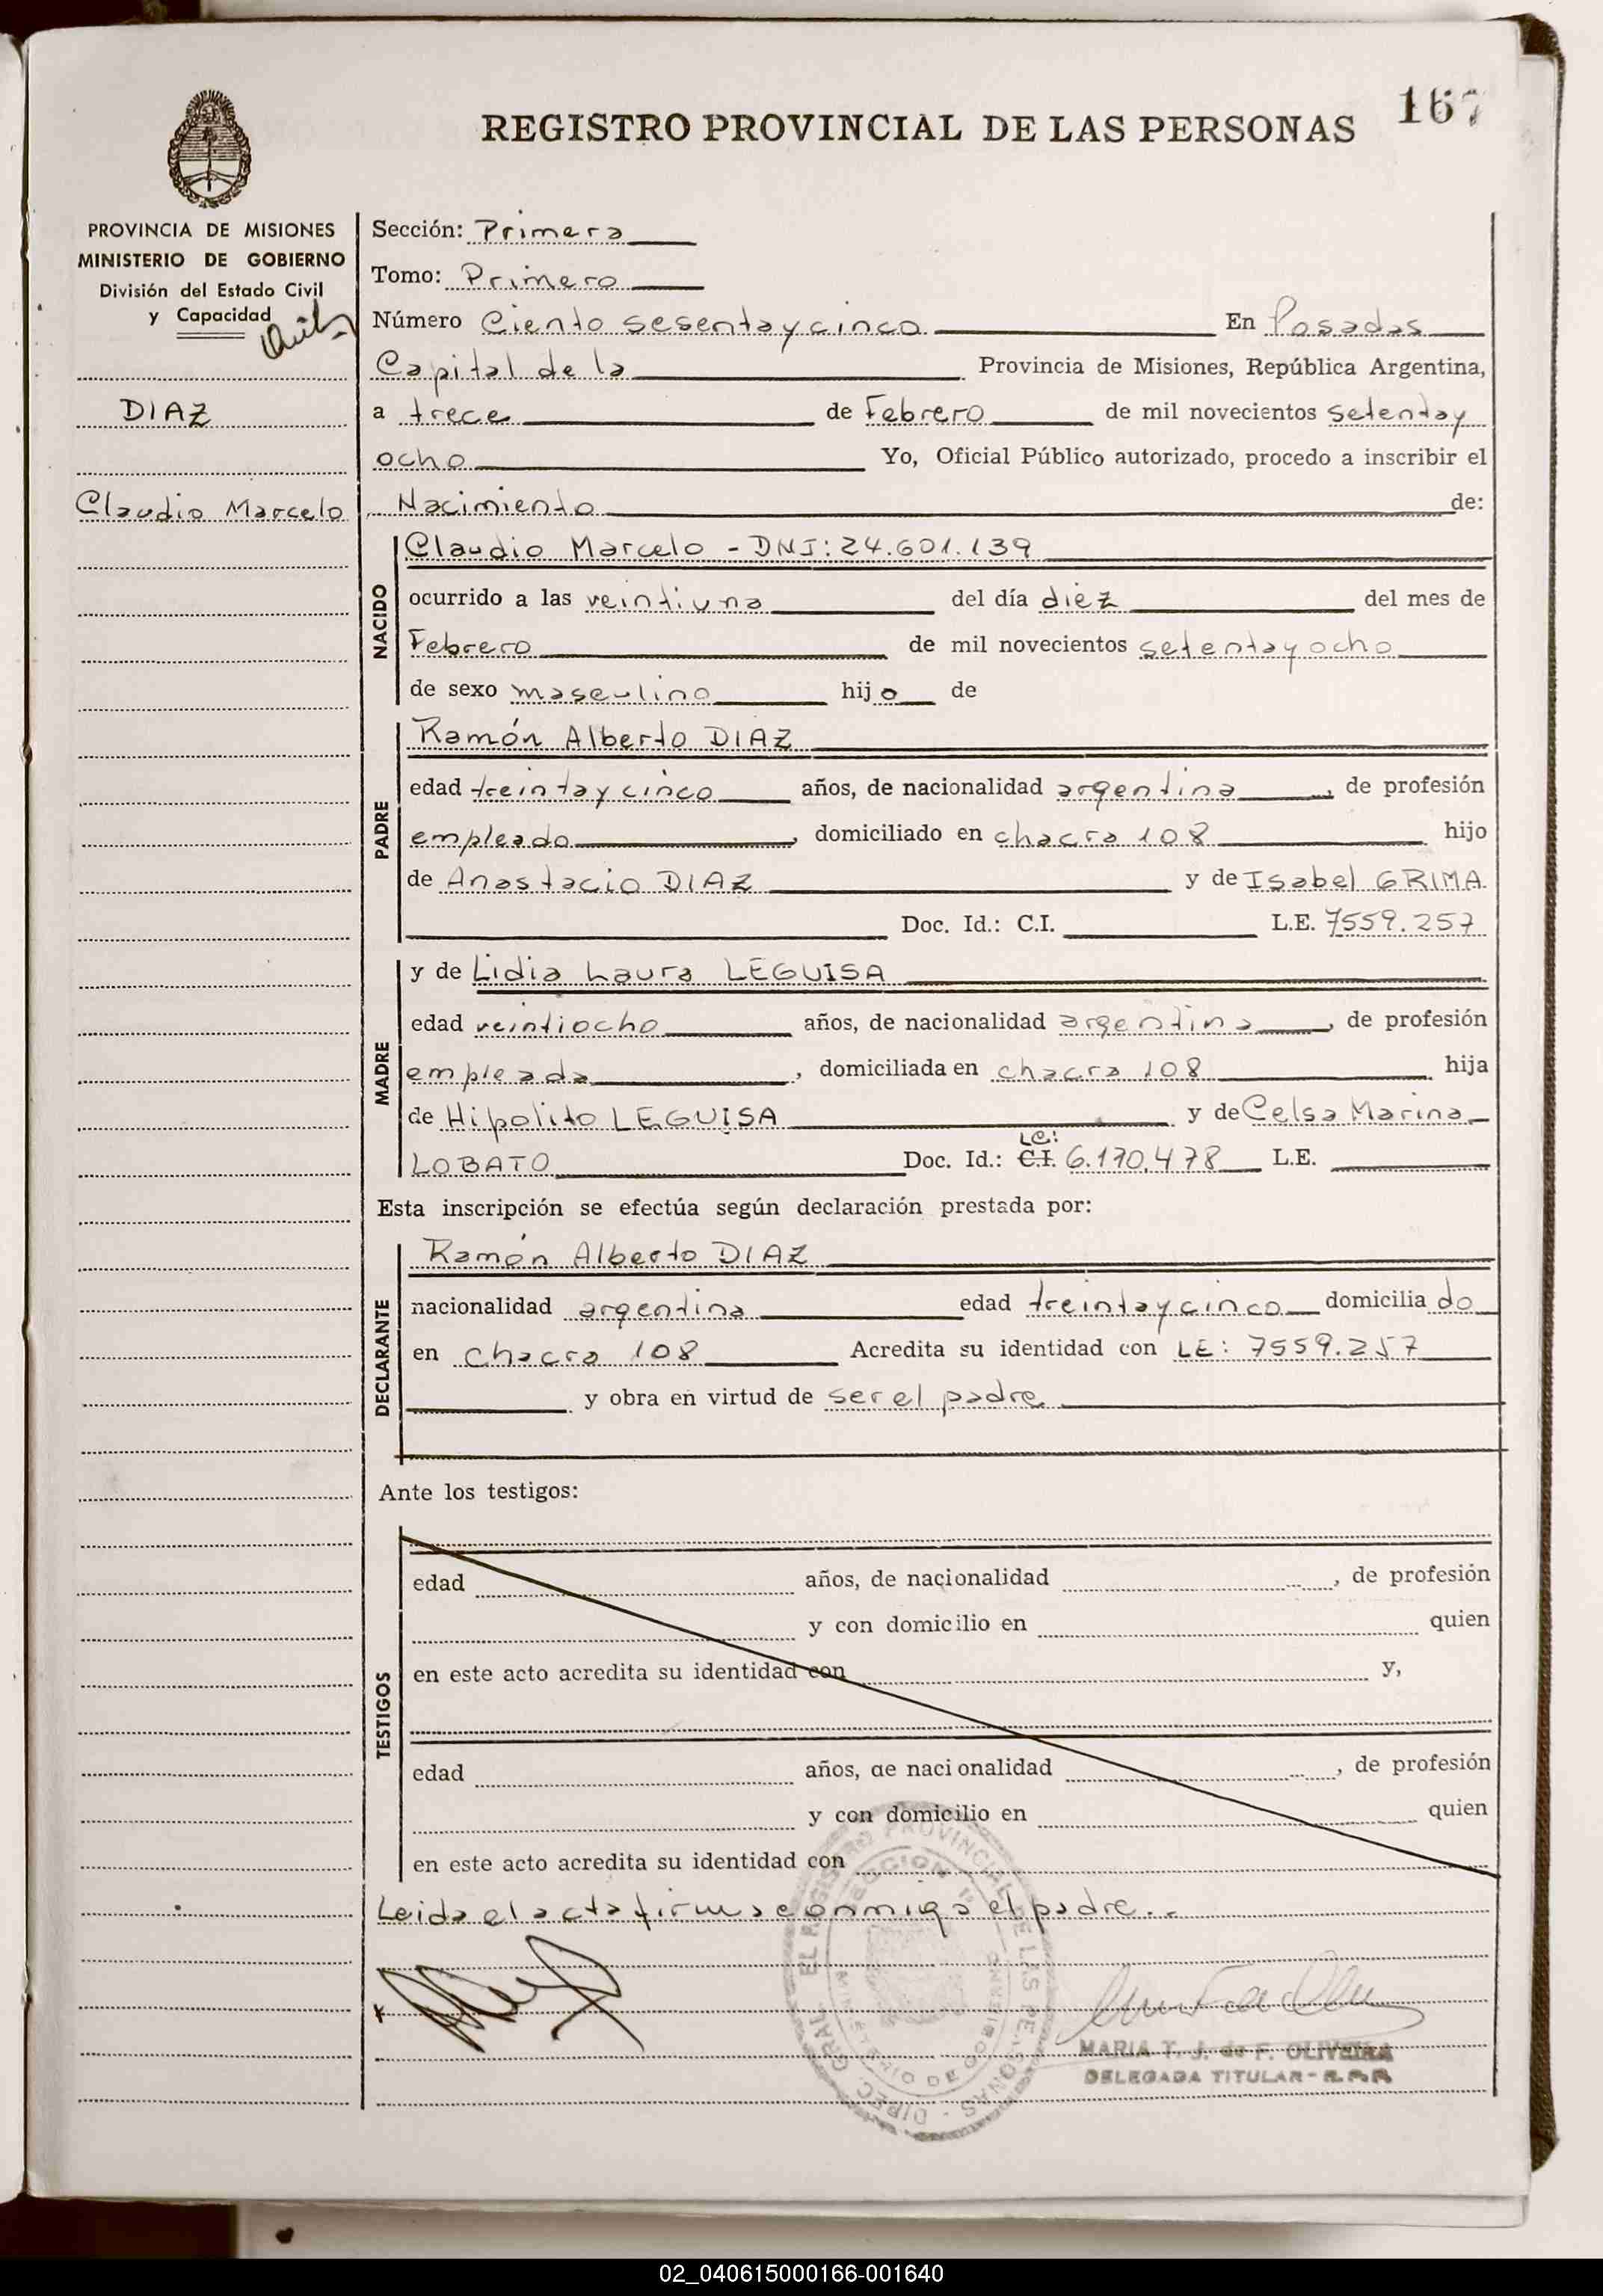 167
REGISTRO PROVINCIAL DE LAS PERSONAS
PROVINCIA DE MISIONES
MINISTERIO DE GOBIERNO
División del Estado Civil
y Capacidad
DIAZ
Claudio Marcelo
Sección: Primera
Tomo: Primero
Número Ciento sesenta y cinco En Posadas
Capital de la Provincia de Misiones, República Argentina,
a trece de Febrero de mil novecientos setenta y
ocho Yo, Oficial Público autorizado, procedo a inscribir el
Nacimiento de:
NACIDO
Claudio Marcelo - DNI: 24.601.139
ocurrido a las veintiuna del día diez del mes de
Febrero de mil novecientos setenta y ocho
de sexo masculino hijo de
PADRE
Ramón Alberto DIAZ
edad treinta y cinco años, de nacionalidad argentina, de profesión
empleado, domiciliado en chacra 108 hijo
de Anastacio DIAZ y de Isabel GRIMA
Doc. Id.: C.I. L.E. 7559.257
MADRE
y de Lidia Laura LEGUISA
edad veintiocho años, de nacionalidad argentina, de profesión
empleada, domiciliada en chacra 108 hija
de Hipolito LEGUISA y de Celsa Marina
LC:
LOBATO Doc. Id.: C.I. 6.170.478 L.E.
Esta inscripción se efectúa según declaración prestada por:
DECLARANTE
Ramón Alberto DIAZ
nacionalidad argentina edad treinta y cinco domiciliado
en chacra 108 Acredita su identidad con LE: 7559.257
y obra en virtud de ser el padre
Ante los testigos:
TESTIGOS
edad años, de nacionalidad , de profesión
y con domicilio en quien
en este acto acredita su identidad con y,
edad años, de nacionalidad , de profesión
y con domicilio en quien
en este acto acredita su identidad con
Leida el acta firma conmigo el padre..
MARIA T. J. de F. OLIVEIRA
DELEGADA TITULAR - R.P.P.
02_040615000166-001640